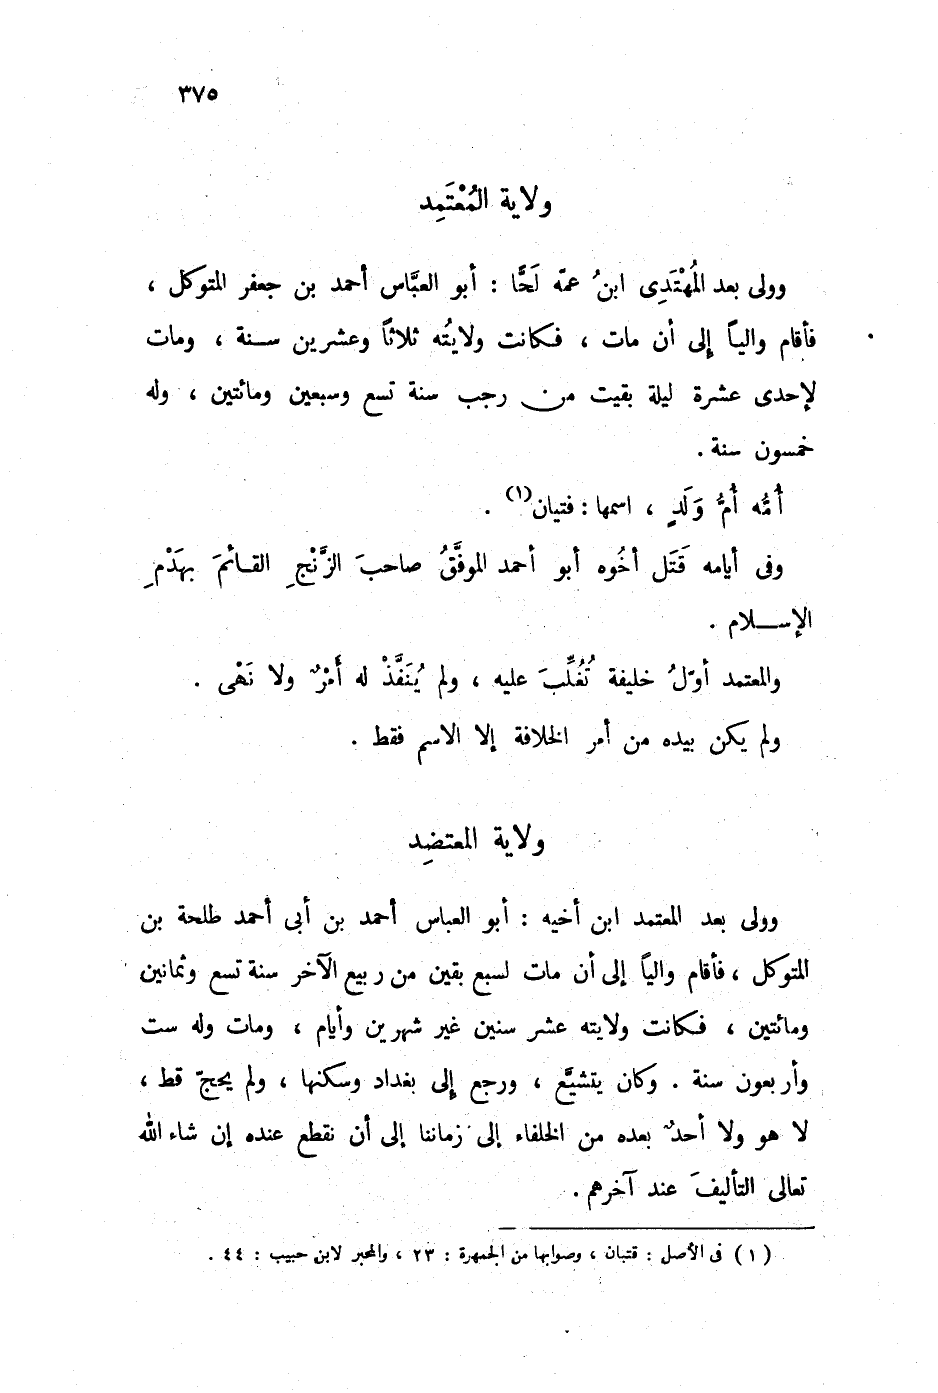 ٣٧٥
ولاية المُعْتَمِد
وولى بعد المُهْتَدِى ابنُ عمّه لَحًّا : أبو العبَّاس أحمد بن جعفر المتوكل ،
فأقام والياً إلى أن مات ، فكانت ولايتُه ثلاثاً وعشرين سنة ، ومات
لإحدى عشرة ليلة بقيت من رجب سنة تسع وسبعين ومائتين ، وله
خمسون سنة .
أُمُّه أُمُّ وَلَدٍ ، اسمها : فتيان(١) .
وفى أيامه قَتَل أخُوه أبو أحمد الموفَّقُ صاحبَ الزَّنْجِ القائمَ بهَدْمِ
الإسلام .
والمعتمد أوّلُ خليفة تُغُلِّبَ عليه ، ولم يُنَفَّذْ له أَمْرٌ ولا نَهْى .
ولم يكن بيده من أمر الخلافة إلا الاسم فقط .
ولاية المعتضِد
وولى بعد المعتمد ابن أخيه : أبو العباس أحمد بن أبى أحمد طلحة بن
المتوكل ، فأقام والياً إلى أن مات لسبع بقين من ربيع الآخر سنة تسع وثمانين
ومائتين ، فكانت ولايته عشر سنين غير شهرين وأيام ، ومات وله ست
وأربعون سنة . وكان يتشيَّع ، ورجع إلى بغداد وسكنها ، ولم يحجّ قط ،
لا هو ولا أحدٌ بعده من الخلفاء إلى زماننا إلى أن نقطع عنده إن شاء الله
تعالى التأليفَ عند آخرهم .
(١) فى الأصل : قتبان ، وصوابها من الجمهرة : ٢٣ ، والمحبر لابن حبيب : ٤٤ .